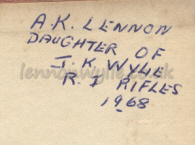 A.K. LENNON
DAUGHTER OF
J.K WYLIE
R.I RIFLES
1968
lennonwylie.co.uk